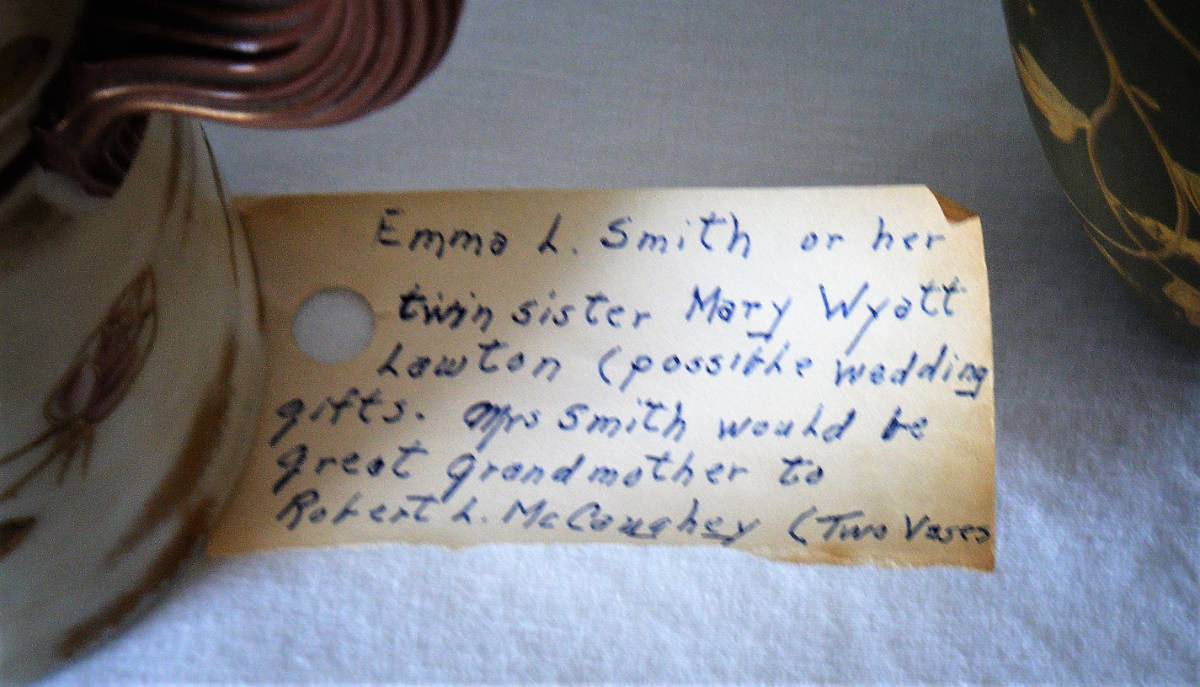 Emma L. Smith or her
twin sister Mary Wyatt
Lawton (possible wedding
gifts. Mrs Smith would be
great grandmother to
Robert L. McCaughey (Two Vases